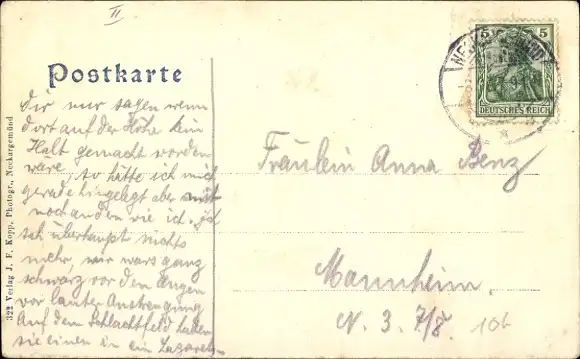 II
Postkarte
5 5
DEUTSCHES REICH
Dir nur sagen wenn
dort auf der Höhe kein
Halt gemacht worden
wäre, so hätte ich mich
gerade hingelegt aber mit
noch andern wie ich. ich
sah überhaupt nichts
mehr, mir wars ganz
schwarz vor den Augen
vor lauter Anstrengung
Auf dem Schlachtfeld haben
sie einen in ein Lazareth
322 Verlag J. F. Kopp, Photogr., Neckargemünd
Fräulein Anna Benz
Mannheim.
N. 3. 7/8. 10b